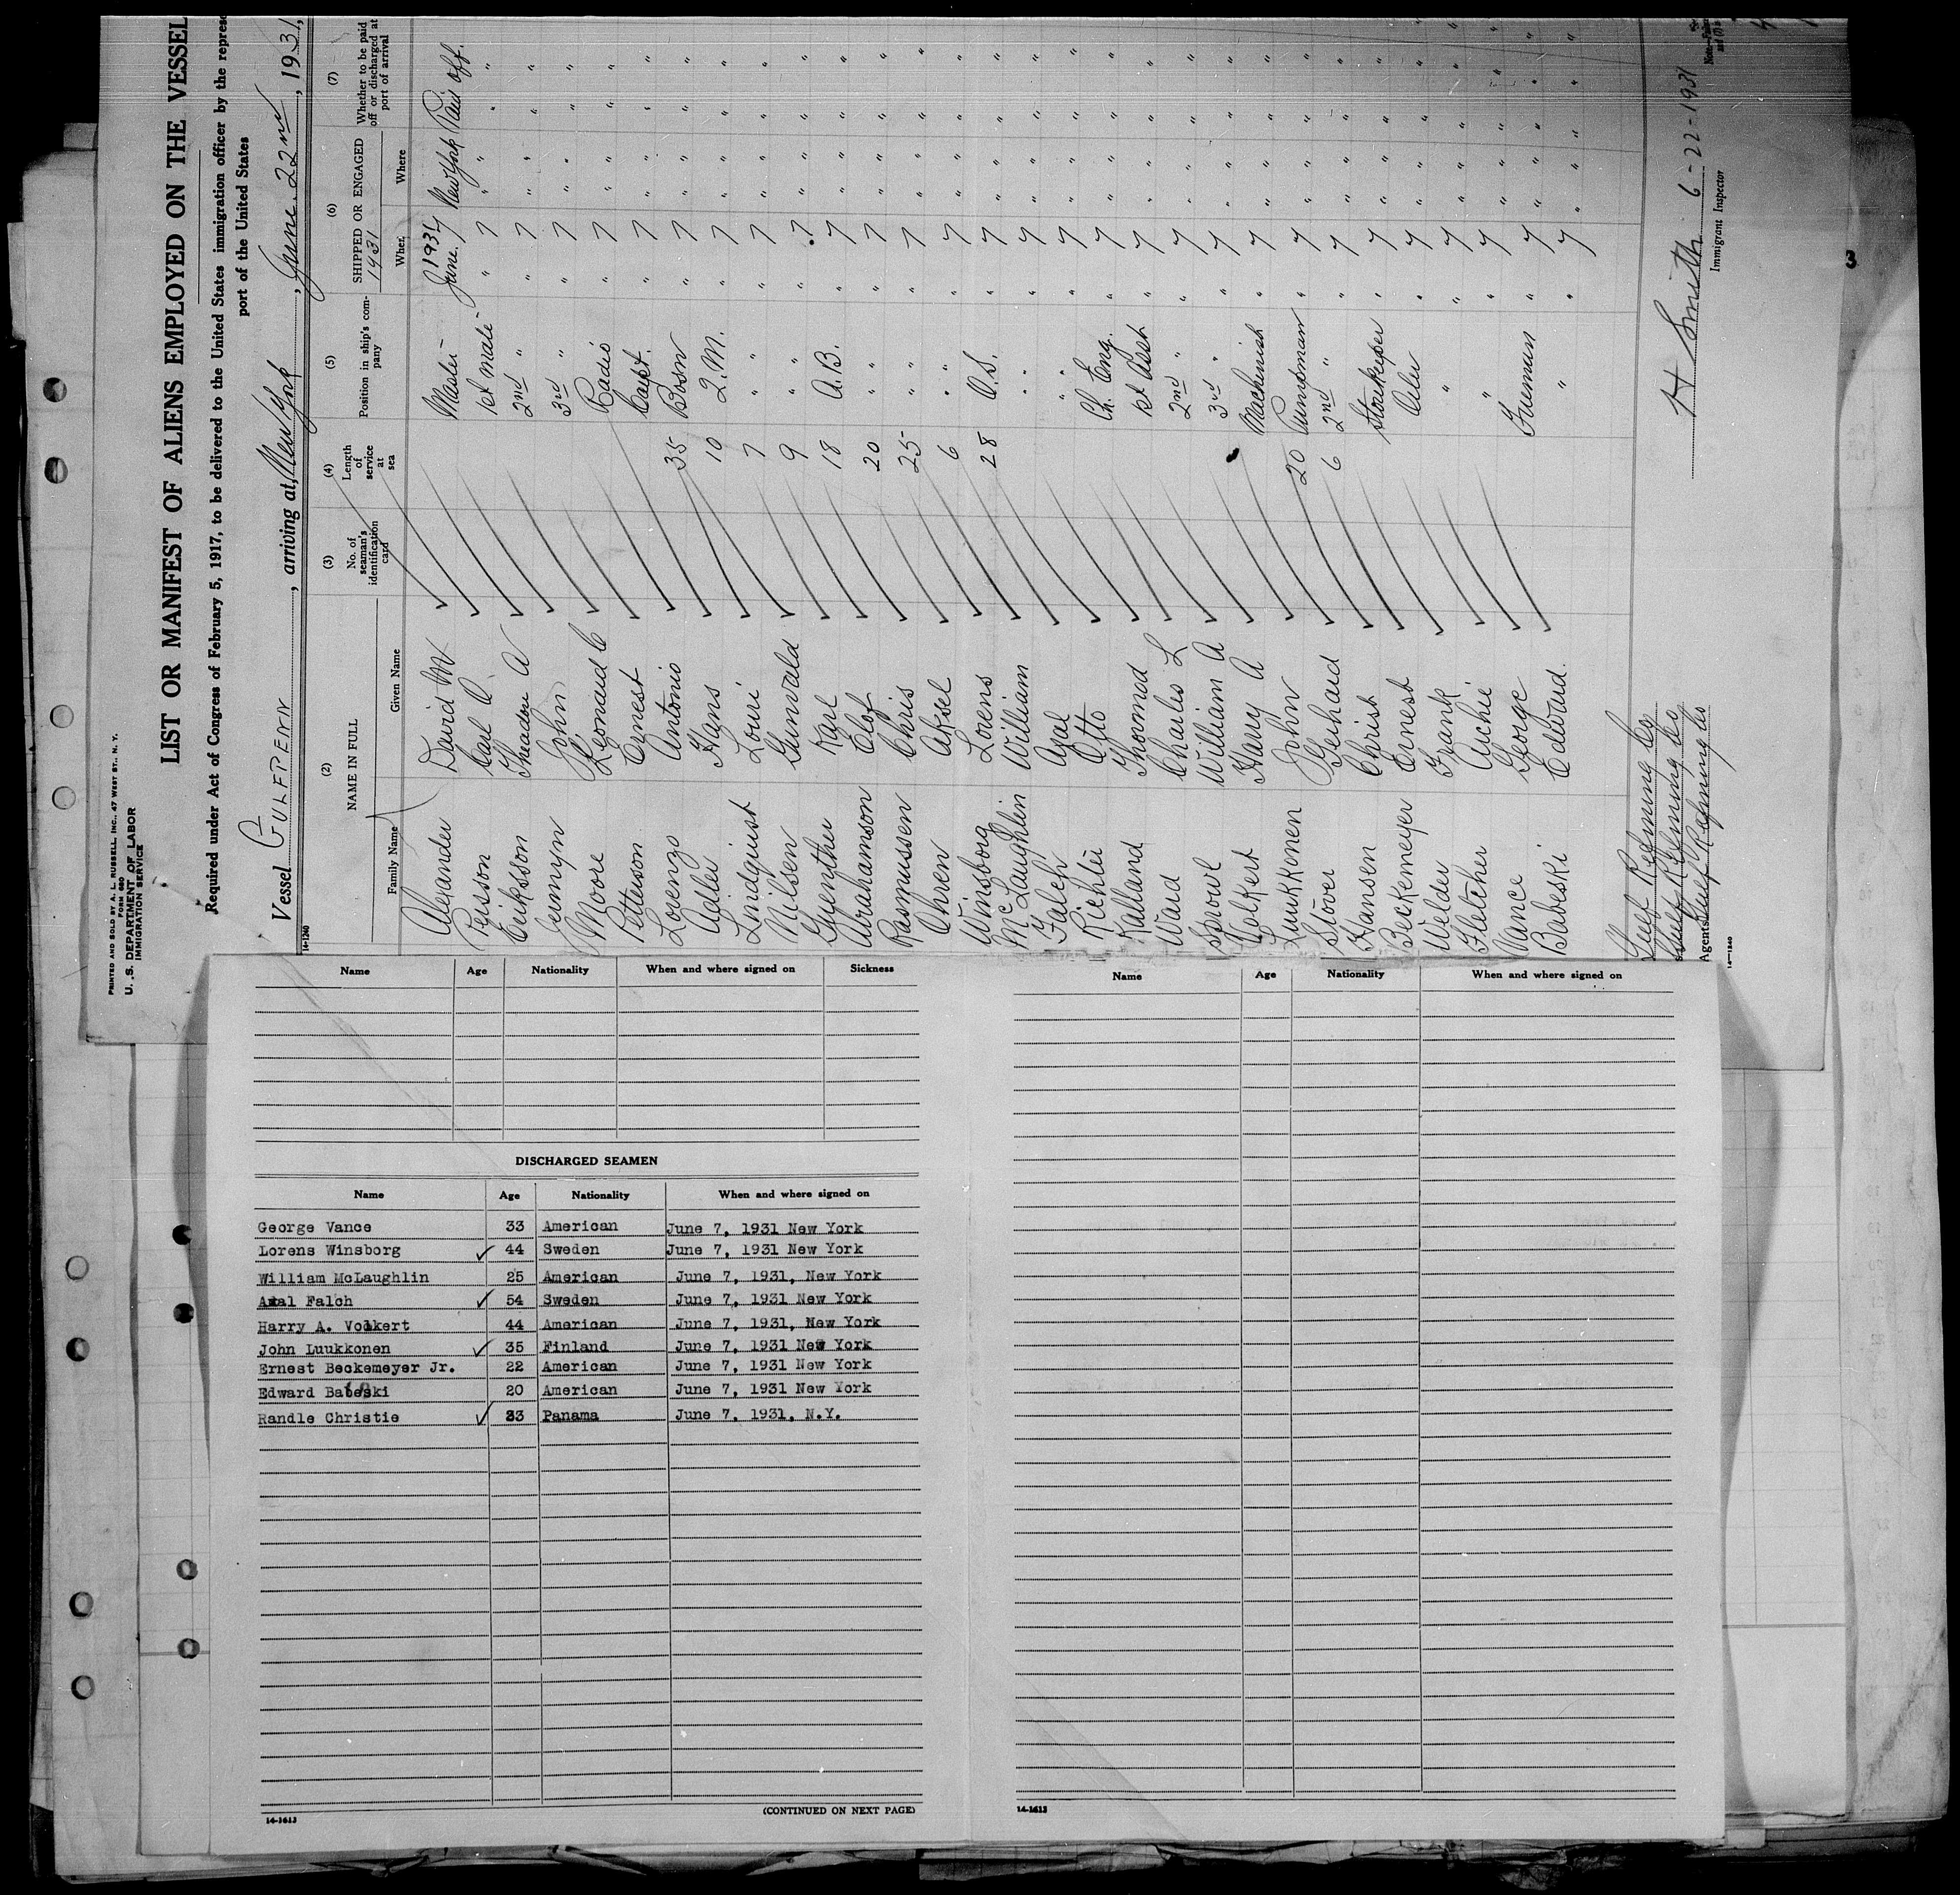 PRINTED AND SOLD BY A. L. RUSSELL, INC., 47 WEST ST., N. Y.
FORM 680
U. S. DEPARTMENT OF LABOR
IMMIGRATION SERVICE
LIST OR MANIFEST OF ALIENS EMPLOYED ON THE VESSEL
Required under Act of Congress of February 5, 1917, to be delivered to the United States immigration officer by the represe
port of the United States
Vessel GULFPENN, arriving at New York, June 22nd, 1931,
14-1240
(2) (3) (4) (5) (6) (7)
NAME IN FULL No. of seaman's identification card Length of service at sea Position in ship's company SHIPPED OR ENGAGED Whether to be paid off or discharged at port of arrival
1931
Family Name Given Name When Where
Alexander David W Master 1931 June 7 New York Paid off.
Peisson Carl O. 1st Mate " 7 " " " "
Eriksson Theodore A 2nd " " 7 " " " "
Jermyn John 3rd " " 7 " " " "
Moore Leonard C Radio " 7 " " " "
Petterson Ernest Carpt. " 7 " " " "
Lorenzo Antonio 35 Bosn " 7 " " " "
Adler Hans 10 Q.M. " 7 " " " "
Lindquist Louri 7 " " " 7 " " " "
Nilsen Gunvald 9 " " " 7 " " " "
Guenther Karl 18 A.B. " 7 " " " "
Abrahamson Elof 20 " " " 7 " " " "
Rasmussen Chris 25 " " " 7 " " " "
Ohren Aksel 6 " " " 7 " " " "
Winsborg Lorens 28 O.S. " 7 " " " "
McLaughlin William " " " 7 " " " "
Falch Axal " " " 7 " " " "
Richter Otto Ch. Eng. " 7 " " " "
Kalland Thormod 1st Asst " 7 " " " "
Ward Charles L 2nd " " 7 " " " "
Sprowl William A 3rd " " 7 " " " "
Volkert Harry A Machinist " 7 " " " "
Luukkenen John 20 Pumpman " 7 " " " "
Stover Gerhard 6 2nd " " 7 " " " "
Hansen Christ Storekeeper " 7 " " " "
Beckemeyer Ernest Oiler " 7 " " " "
Welder Frank " " 7 " " " "
Fletcher Archie " " 7 " " " "
Vance George Fireman " 7 " " " "
Babeski Edward. " " 7 " " " "
Gulf Refining Co
Gulf Refining Co
Agents Gulf Refining Co
14-1240
H Smith 6-22-1931
Immigrant Inspector
Name Age Nationality When and where signed on Sickness
DISCHARGED SEAMEN
Name Age Nationality When and where signed on
George Vance 33 American June 7, 1931 New York
Lorens Winsborg ✓ 44 Sweden June 7, 1931 New York
William McLaughlin 25 American June 7, 1931, New York
Axal Falch ✓ 54 Sweden June 7, 1931 New York
Harry A. Volkert 44 American June 7, 1931, New York
John Luukkonen ✓ 35 Finland June 7, 1931 New York
Ernest Beckemeyer Jr. 22 American June 7, 1931 New York
Edward Babeski 20 American June 7, 1931 New York
Randle Christie ✓ 33 Panama June 7, 1931, N.Y.
14-1613
(CONTINUED ON NEXT PAGE)
Name Age Nationality When and where signed on
14-1613
3